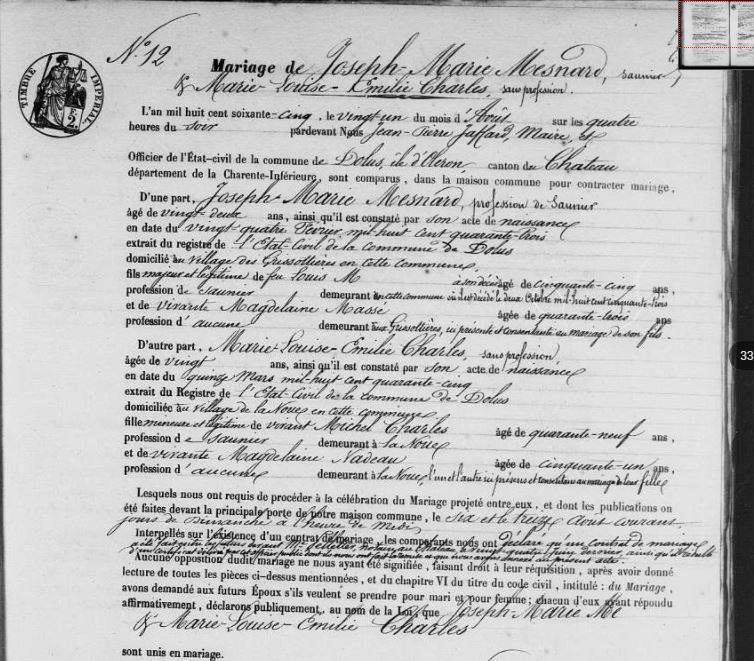 N.° 12
Mariage de Joseph-Marie Mesnard, saunier,
& Marie-Louise-Emilie Charles, sans profession.
TIMBRE IMPÉRIAL 2.
L'an mil huit cent soixante-cinq, le vingt-un du mois d'Août sur les quatre
heures du soir pardevant Nous Jean-Pierre Jaffard, Maire, et
Officier de l'État-civil de la commune de Dolus, île d'Oleron canton de Chateau
département de la Charente-Inférieure, sont comparus, dans la maison commune pour contracter mariage,
D'une part, Joseph-Marie Mesnard, profession de Saunier
âgé de vingt-deux ans, ainsi qu'il est constaté par son acte de naissance
en date du vingt-quatre Février mil-huit cent quarante-trois
extrait du registre de l'Etat-Civil de la Commune de Dolus
domicilié au village des Grissottières en cette commune,
fils majeur et légitime de feu Louis M à son décès âgé de cinquante-cinq ans,
profession de saunier demeurant en cette commune où il est décédé le deux Octobre mil-huit cent cinquante-trois
et de vivante Magdelaine Massé âgée de quarante-trois ans
profession d'aucune demeurant aux Grissottières, ici présente et consentante au mariage de son fils.
D'autre part, Marie-Louise-Emilie Charles, sans profession,
âgée de vingt ans, ainsi qu'il est constaté par son acte de naissance
en date du quinze Mars mil-huit cent quarante-cinq
extrait du Registre de l'Etat-Civil de la commune de Dolus
domiciliée au village de la Noue en cette commune
fille mineure et légitime de vivant Michel Charles âgé de quarante-neuf ans,
profession de saunier demeurant à la Noue
et de vivante Magdelaine Nadeau âgée de cinquante-un ans,
profession d'aucune demeurant à la Noue l'un et l'autre ici présens et consentans au mariage de leur fille
Lesquels nous ont requis de procéder à la célébration du Mariage projeté entre eux, et dont les publications on
été faites devant la principale porte de notre maison commune, le six et le treize Aout courant,
jours de dimanche à l'heure de midi
Interpellés sur l'existence d'un contrat de mariage, les comparants nous ont déclaré qu'un Contrat de mariage
a été fait entre les futurs devant Me Pelletier, notaire au Chateau le vingt-quatre Juin dernier, ainsi qu'il résulte
d'un certificat délivré par cet officier public
Aucune opposition dudit mariage ne nous ayant été signifiée, faisant droit à leur réquisition, après avoir donné
lecture de toutes les pièces ci-dessus mentionnées, et du chapitre VI du titre du code civil, intitulé : du Mariage,
avons demandé aux futurs Époux s'ils veulent se prendre pour mari et pour femme; chacun d'eux ayant répondu
affirmativement, déclarons publiquement, au nom de la Loi, que Joseph-Marie Me
& Marie-Louise-Emilie Charles
sont unis en mariage.
33